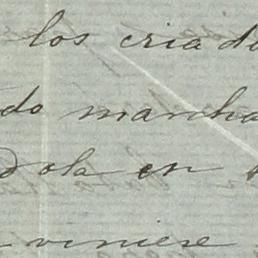 los criad
do marcha
dola en
viniese